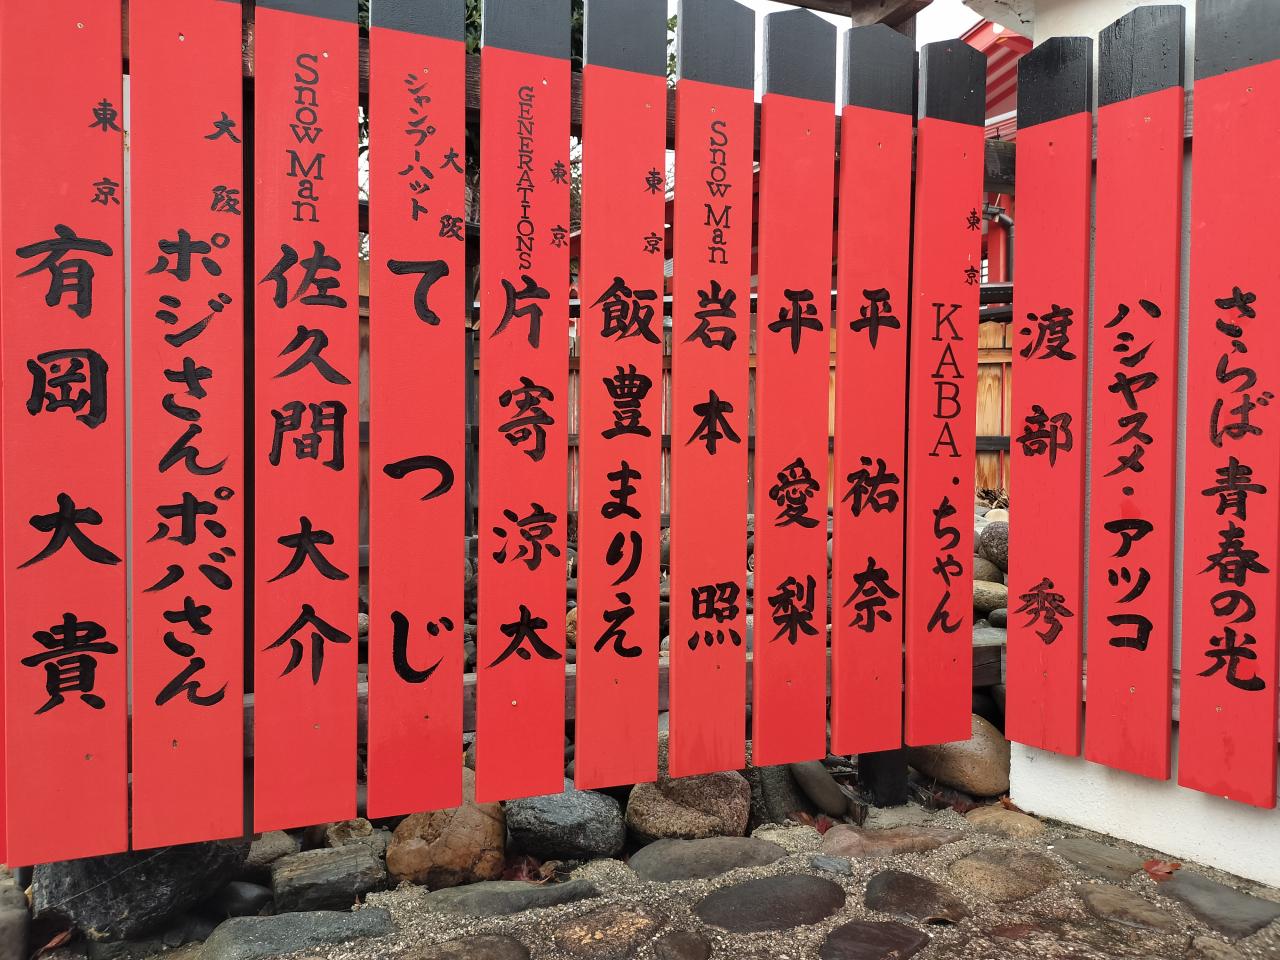 さらば青春の光
ハシヤスメ・アツコ
渡部秀
東京
KABA.ちゃん
平祐奈
平愛梨
Snow Man
岩本照
東京
飯豊まりえ
東京
GENERATIONS
片寄涼太
大阪
シャンプーハット
てつじ
Snow Man
佐久間大介
大阪
ポジさんポバさん
東京
有岡大貴